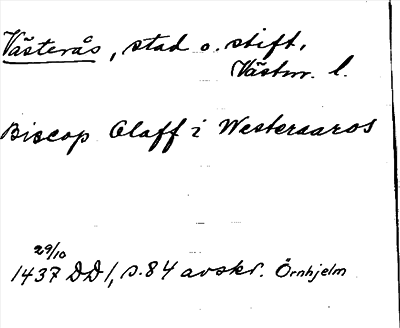 Västerås, stad o. stift,
Västm. l.
Biscop Olaff i Westeraaros
29/10
1437 DD1, s. 84 avskr. Örnhjelm